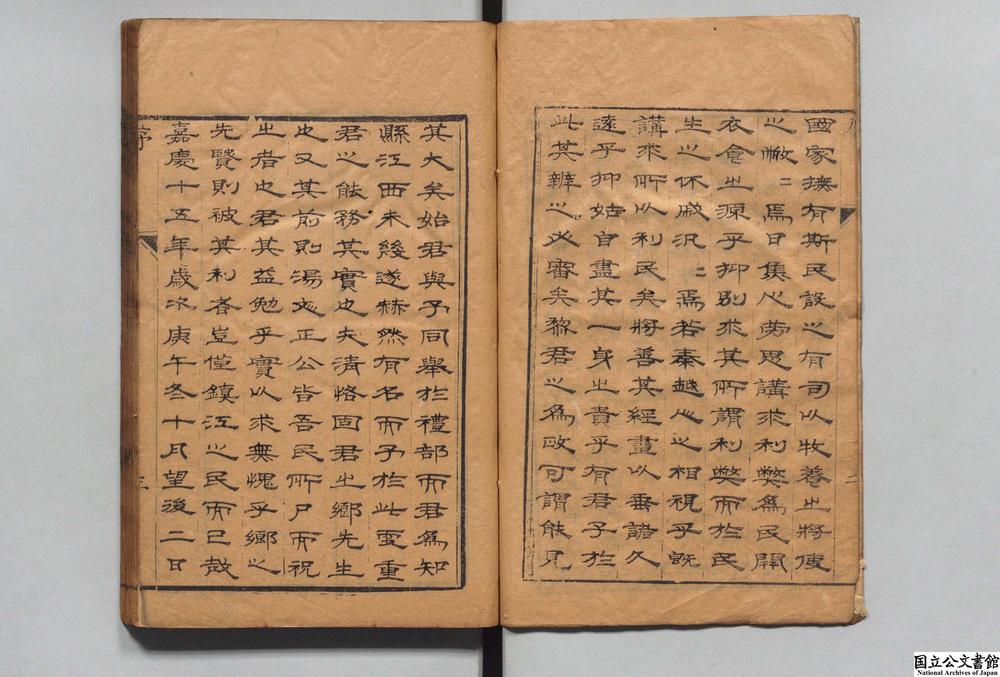 國家撫有斯民設之有司以牧養之將使
之敝〻焉日焦心勞思講求利弊為民開
衣食之源乎抑別求其所謂利弊而於民
生之休戚況〻焉若秦越人之相視乎旣
講求所以利民矣將善其經畫以垂諸久
遠乎抑姑自盡其一身之責乎有君子於
此其辨之必審矣黎君之為政可謂能見
二
其大矣始君與予同舉於禮部而君為知
縣江西未幾遂赫然有名而予於此更重
君之能務其實也夫清恪固君之鄉先生
也又其前則湯文正公皆吾民所尸而祝
之者也君其益勉乎實以求無愧乎鄉之
先賢則被其利者豈僅鎮江之民而已哉
嘉慶十五年歲次庚午冬十月望後二日
序
三
国立公文書館
National Archives of Japan